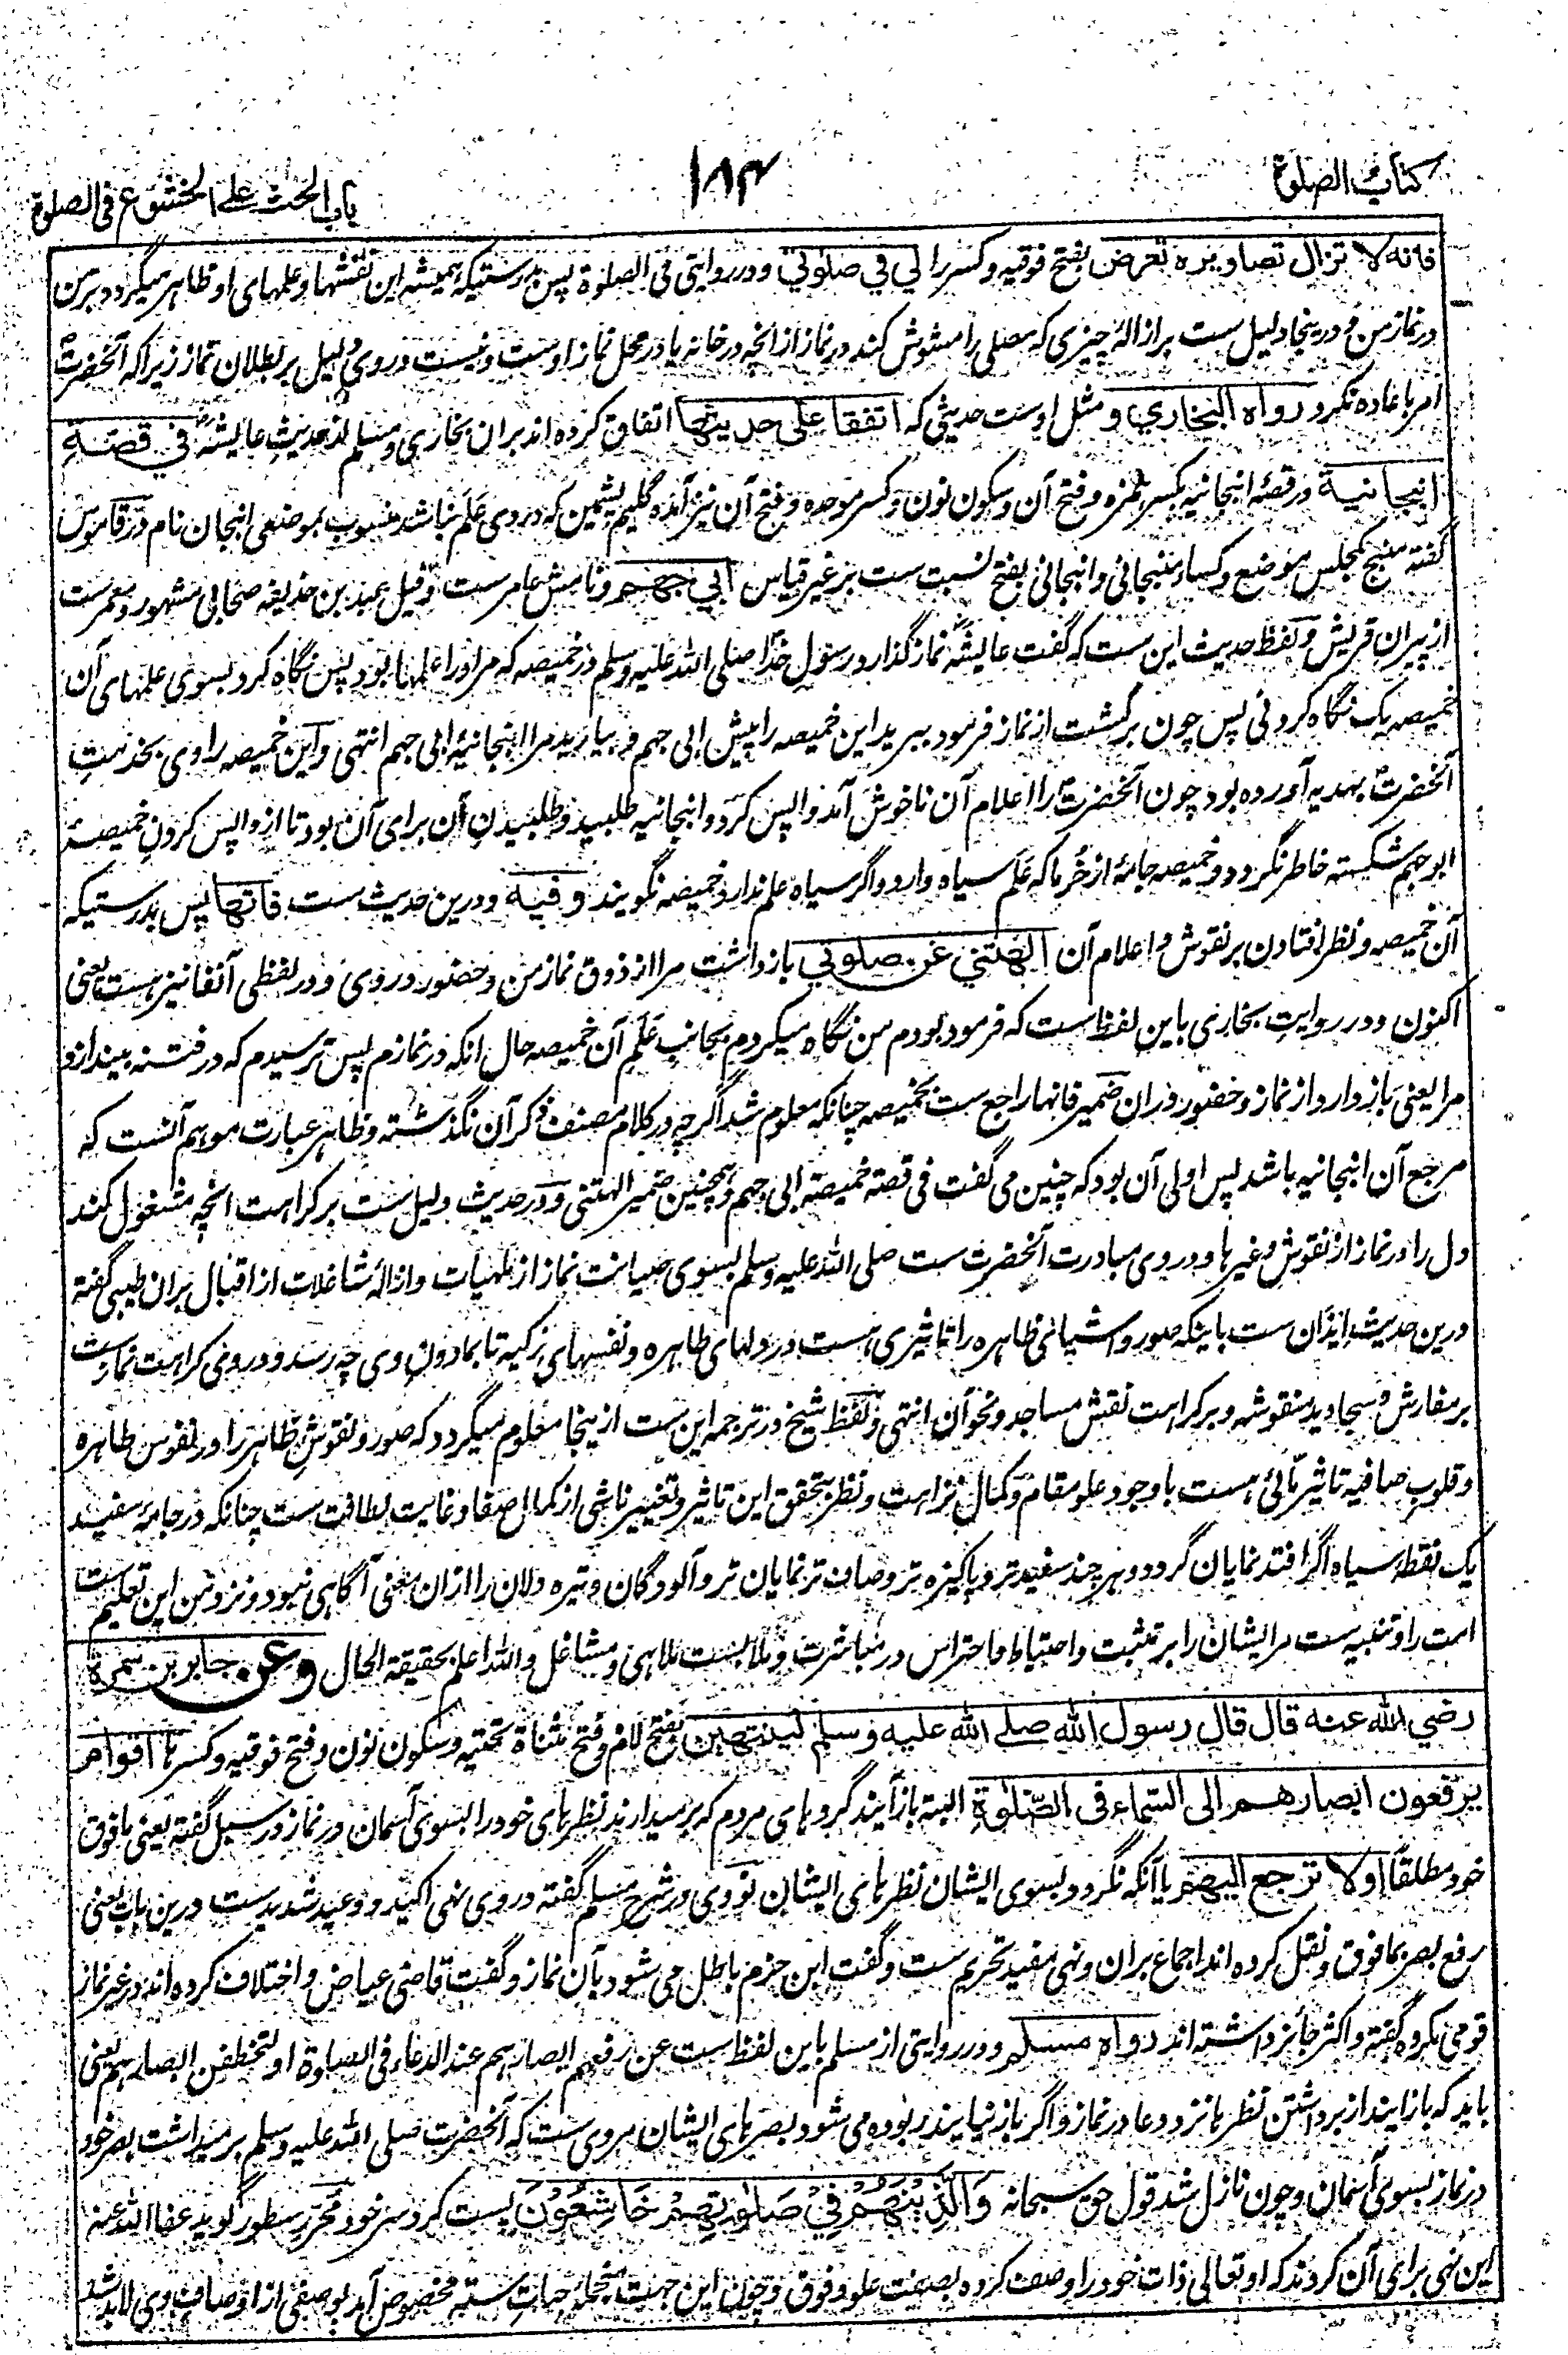 كتاب الصلوة
۱۸۴
باب الحث على الخشوع فى الصلوة
فانه لا تزال تصاويره تعرض بفتح فوقيه وكسر را لي في صلوتي ودر روايتى فى الصلوة پس بدرستيكه هميشه اين نقشها وعلمهاى او ظاهر ميگردد بر من
در نماز من ودرينجا دليل ست بر ازالهٔ چيزى كه مصلى را مشوش كند در نماز از انچه در خانه يا در محل نماز اوست ونيست در وى دليل بر بطلان نماز زيراكه آنحضرتؐ
امر باعاده نكرد رواه البخاري ومثل اوست حديثى كه اتفقا على حديثها اتفاق كرده اند بران بخارى ومسلم از حديث عايشهؓ في قصة
انبجانية در قصهٔ انبجانيه بكسر همزه وفتح آن وسكون نون وكسر موحده وفتح آن نيز آمده گليم پشمين كه در وى علم نباشد منسوب بموضعى انبجان نام در قاموس
گفته منبج كمجلس موضع وكساء منبجانى وانبجانى بفتح نسبت ست بر غير قياس ابي جهم ونامش عامر ست وقيل عبيد بن حذيفه صحابى مشهور ومعمر ست
از پيران قريش ولفظ حديث اين ست كه گفت عايشهؓ نماز گذارد رسول خدا صلى الله عليه وسلم در خميصه كه مر او را علمها بود پس نگاه كرد بسوى علمهاى آن
خميصه يك نگاه كردنى پس چون برگشت از نماز فرمود ببريد اين خميصه را پيش ابى جهم وبياريد مرا انبجانيهٔ ابى جهم انتهى واين خميصه را وى بخدمت
آنحضرتؐ بهديه آورده بود چون آنحضرتؐ را اعلام آن ناخوش آمد واپس كرد وانبجانيه طلبيد وطلبيدن آن براى آن بود تا از واپس كردن خميصهٔ
ابو جهم شكسته خاطر نگردد وخميصه جامهٔ از خز يا كه علم سياه دارد واگر سياه علم ندارد خميصه نگويند وفيه ودرين حديث ست فانها پس بدرستيكه
آن خميصه ونظر افتادن بر نقوش واعلام آن الهتني عن صلوتي باز داشت مرا از ذوق نماز من وحضور در وى ودر لفظى آنفا نيز هست يعنى
اكنون ودر روايت بخارى باين لفظ ست كه فرمود بودم من نگاه ميكردم بجانب علم آن خميصه حال انكه در نمازم پس ترسيدم كه در فتنه بيندازد
مرا يعنى باز دارد از نماز وحضور دران ضمير فانها راجع ست بخميصه چنانكه معلوم شد اگرچه در كلام مصنف ذكر آن نگذشته وظاهر عبارت موهم آنست كه
مرجع آن انبجانيه باشد پس اولى آن بود كه چنين مى گفت فى قصة خميصة ابى جهم وهمچنين ضمير الهتنى ودر حديث دليل ست بر كراهت انچه مشغول كند
دل را در نماز از نقوش وغيرها ودر وى مبادرت آنحضرت ست صلى الله عليه وسلم بسوى صيانت نماز از ملهيات وازالهٔ شاغلات از اقبال بران طيبى گفته
درين حديث ايذان ست باينكه صور واشياى ظاهره را تاثيرى هست در دلهاى طاهره ونفسهاى زكيه تا بمادون وى چه رسد ودر وى كراهت نماز ست
بر مفارش وسجاديد منقوشه وبر كراهت نقش مساجد ونحو آن انتهى ولفظ شيخ در ترجمه اين ست ازينجا معلوم ميگردد كه صور ونقوش ظاهر را در نفوس طاهره
وقلوب صافيه تاثير هائى هست باوجود علو مقام وكمال نزاهت ونظر بتحقق اين تاثير وتغيير ناشى از كمال صفا وغايت لطافت ست چنانكه در جامهٔ سفيد
يك نقطه سياه اگر افتد نمايان گردد وهر چند سفيدتر وپاكيزه تر وصاف تر نمايان تر وآلودگان وتيره دلان را ازان معنى آگاهى نبود ونزد من اين تعليم ست
امت را وتنبيه ست مر ايشان را بر تثبت واحتياط واحتراس در مباشرت وملابست ملاهى ومشاغل والله اعلم بحقيقة الحال وعن جابر بن سمرة
رضي الله عنه قال قال رسول الله صلے الله عليه وسلم لينتهين بفتح لام وفتح مثناة تحتيه وسكون نون وفتح فوقيه وكسر ها اقوام
يرفعون ابصارهم الى السماء فى الصّلوة البته باز آيند گروهاى مردم كه برميدارند نظرهاى خود را بسوى آسمان در نماز در سبل گفته يعنى ما فوق
خود مطلقا او لا ترجع اليهم يا آنكه نگردد بسوى ايشان نظرهاى ايشان نووى در شرح مسلم گفته در وى نهى اكيد ووعيد شديد ست درين باب يعنى
رفع بصر بما فوق ونقل كرده اند اجماع بران ونهى مفيد تحريم ست وگفت ابن حزم باطل مى شود بآن نماز وگفت قاضى عياض واختلاف كرده اند در غير نماز
قومى مكروه گفته واكثر جائز داشته اند رواه مسلم ودر روايتى از مسلم باين لفظ ست عن رفعهم ابصارهم عند الدعاء فى الصلوة او لتخطفن ابصارهم يعنى
بايد كه باز ايند از برداشتن نظرها نزد دعا در نماز واگر باز نيايند ربوده مى شود بصرهاى ايشان مروى ست كه آنحضرت صلى الله عليه وسلم برميداشت بصر خود
در نماز بسوى آسمان وچون نازل شد قول حق سبحانه وَالَّذِيْنَ هُمْ فِيْ صَلٰوتِهِمْ خَاشِعُوْنَ پست كرد سر خود محرر سطور گويد عفا الله عنه
اين نهى براى آن كردند كه او تعالى ذات خود را وصف كرده بصفت علو وفوق وچون اين جهت منجملهٔ جهات سته مخصوص آمد بوصفى از اوصاف وى لابد شد